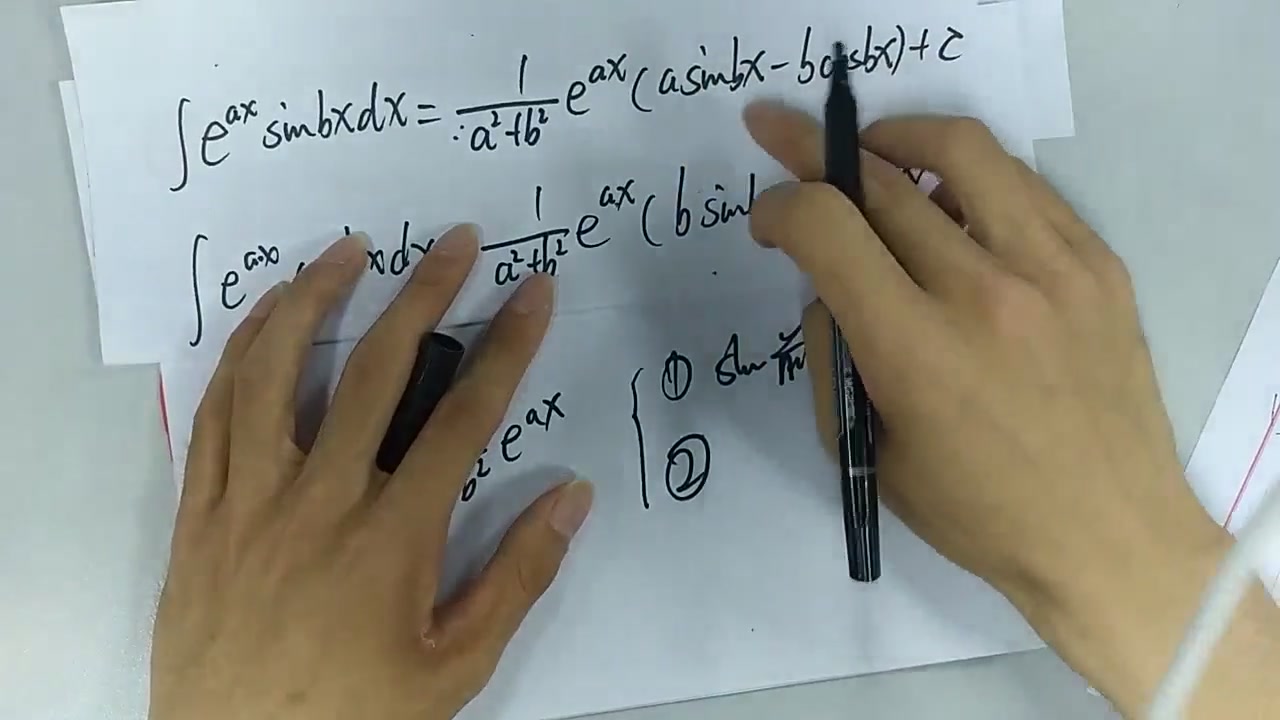 ∫e^{ax} sinbxdx = \frac{1}{a²+b²} e^{ax} (asinbx - bcosbx) + C
∫e^{ax} xdx \frac{1}{a²+b²} e^{ax} (b sinb
① sin
b² e^{ax}
②